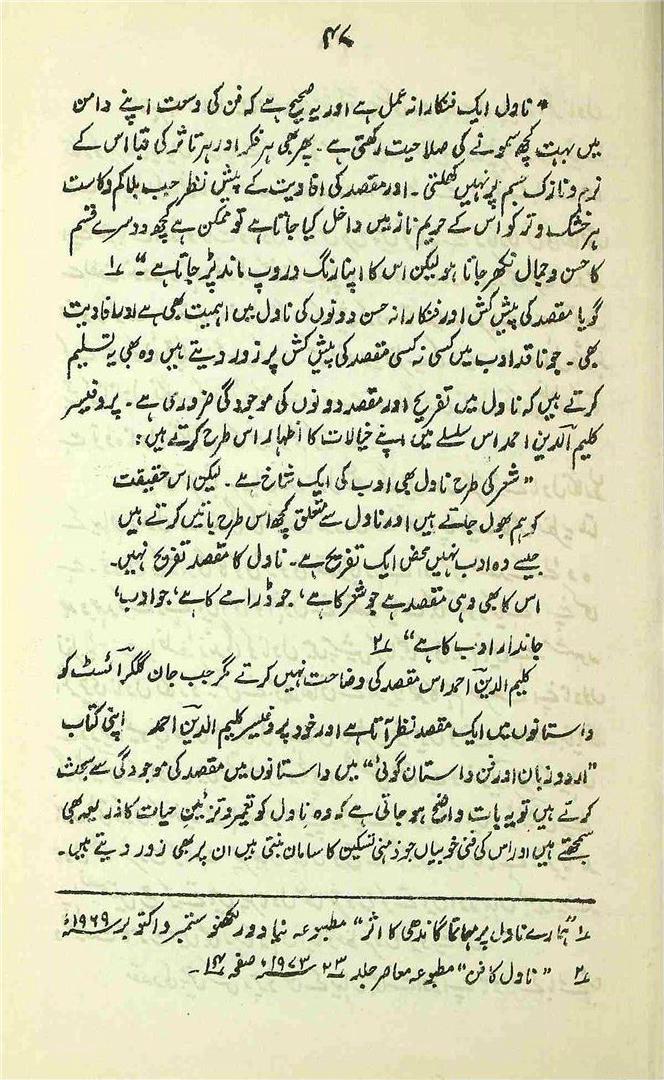 ۴۷
" ناول ایک فنکارانہ عمل ہے اور یہ صحیح ہے کہ فن کی وسعت اپنے دامن
میں بہت کچھ سمونے کی صلاحیت رکھتی ہے ۔ پھر بھی ہر فکر اور ہر تاثر کی قبا اس کے
نرم و نازک جسم پر نہیں کھلتی ۔ اور مقصد کی افادیت کے پیش نظر جب بلا کم و کاست
ہر خشک و تر کو اس کے حریم ناز میں داخل کیا جاتا ہے تو ممکن ہے کچھ دوسرے قسم
کا حسن و جمال نکھر جاتا ہو لیکن اس کا اپنا رنگ و روپ ماند پڑ جاتا ہے ۔" ۱؎
گویا مقصد کی پیش کش اور فنکارانہ حسن دونوں کی ناول میں اہمیت بھی ہے اور افادیت
بھی ۔ جو ناقد ادب میں کسی نہ کسی مقصد کی پیش کش پر زور دیتے ہیں وہ بھی یہ تسلیم
کرتے ہیں کہ ناول میں تفریح اور مقصد دونوں کی موجودگی ضروری ہے ۔ پروفیسر
کلیم الدین احمد اس سلسلے میں اپنے خیالات کا اظہار اس طرح کرتے ہیں :
" شعر کی طرح ناول بھی ادب کی ایک شاخ ہے ۔ لیکن اس حقیقت
کو ہم بھول جاتے ہیں اور ناول سے متعلق کچھ اس طرح باتیں کرتے ہیں
جیسے وہ ادب نہیں محض ایک تفریح ہے ۔ ناول کا مقصد تفریح نہیں ۔
اس کا بھی وہی مقصد ہے جو شعر کا ہے ، جو ڈرامے کا ہے ، جو ادب ،
جاندار ادب کا ہے " ۲؎
کلیم الدین احمد اس مقصد کی وضاحت نہیں کرتے مگر جب جان گلکرائسٹ کو
داستانوں میں ایک مقصد نظر آتا ہے اور خود پروفیسر کلیم الدین احمد اپنی کتاب
"اردو زبان اور فن داستان گوئی" میں داستانوں میں مقصد کی موجودگی سے بحث
کرتے ہیں تو یہ بات واضح ہو جاتی ہے کہ وہ ناول کو تعمیر و تزئین حیات کا ذریعہ بھی
سمجھتے ہیں اور اس کی فنی خوبیاں جو ذہنی تسکین کا سامان بنتی ہیں ان پر بھی زور دیتے ہیں ۔
۱؎ "ہمارے ناول پر مہاتما گاندھی کا اثر" مطبوعہ نیا دور لکھنؤ ستمبر و اکتوبر ۱۹۶۹ء
۲؎ " ناول کا فن " مطبوعہ معاصر جلد ۲۳ ۱۹۷۳ء صفحہ